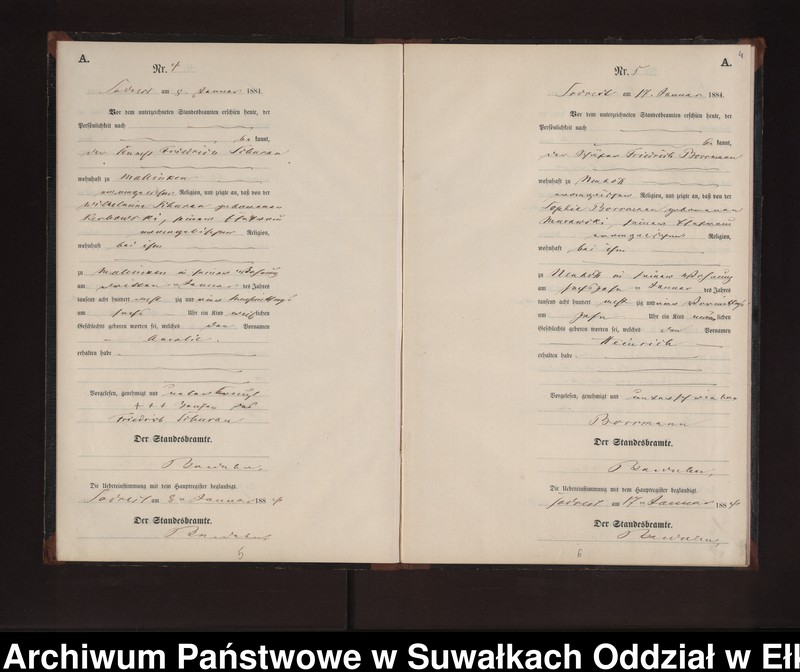 A.
Nr. 4
am 8. Januar 1884.
Vor dem unterzeichneten Standesbeamten erschien heute, der
Persönlichkeit nach
bekannt,
der Friedrich
wohnhaft zu Mallinken
evangelischer Religion, und zeigte an, daß von der
Wilhelmine geborenen
seiner Ehefrau
evangelischer Religion,
wohnhaft bei ihm
zu Mallinken in seiner Wohnung
am Januar des Jahres
tausend acht hundert achtzig und vier
um Uhr ein Kind weiblichen
Geschlechts geboren worden sei, welches den Vornamen
Amalie
erhalten habe.
Vorgelesen, genehmigt und
+++
Friedrich
Der Standesbeamte.
Die Uebereinstimmung mit dem Hauptregister beglaubigt.
am 8. Januar 1884
Der Standesbeamte.
5
4
A.
Nr. 5
am 17. Januar 1884.
Vor dem unterzeichneten Standesbeamten erschien heute, der
Persönlichkeit nach
bekannt,
der Friedrich Borrmann
wohnhaft zu Neuhoff
evangelischer Religion, und zeigte an, daß von der
Sophie Borrmann geborenen
Murawski, seiner Ehefrau
evangelischer Religion,
wohnhaft bei ihm
zu Neuhoff in seiner Wohnung
am Januar des Jahres
tausend acht hundert achtzig und vier Vormittags
um zehn Uhr ein Kind männlichen
Geschlechts geboren worden sei, welches den Vornamen
Heinrich
erhalten habe.
Vorgelesen, genehmigt und unterschrieben
Borrmann
Der Standesbeamte.
Die Uebereinstimmung mit dem Hauptregister beglaubigt.
am 17. Januar 1884
Der Standesbeamte.
6
Archiwum Państwowe w Suwałkach Oddział w Eł